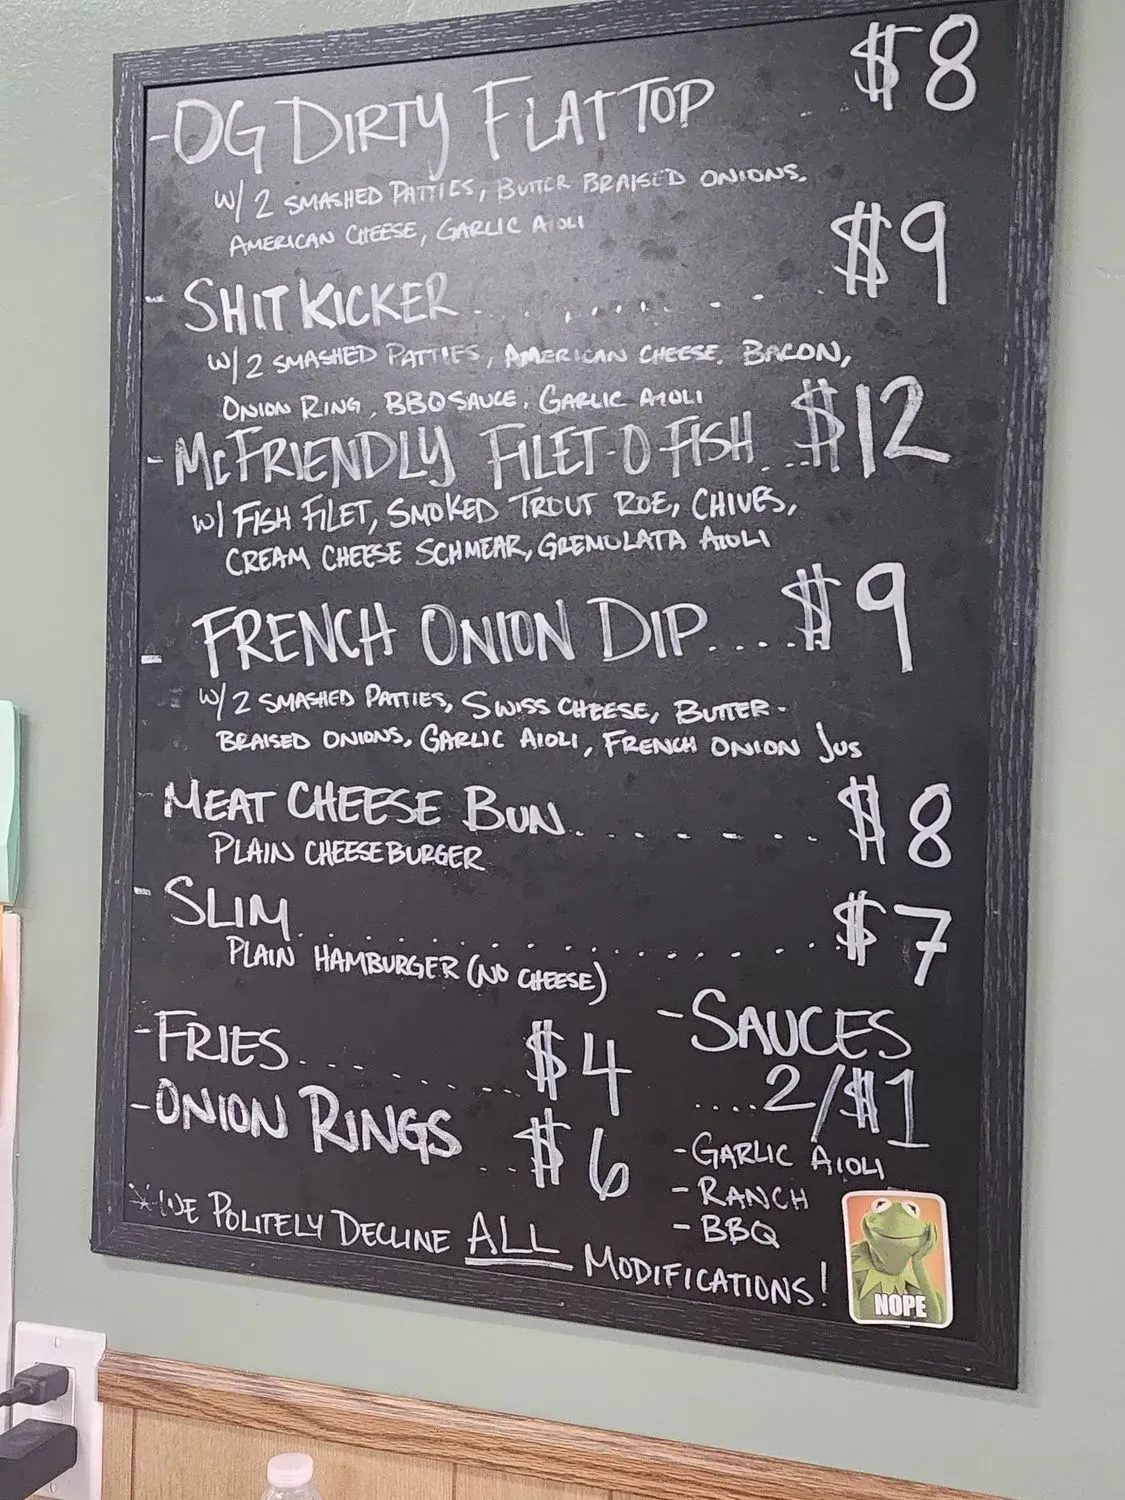 -OG DIRTY FLAT TOP $8
W/ 2 SMASHED PATTIES, BUTTER BRAISED ONIONS,
AMERICAN CHEESE, GARLIC AIOLI
- SHITKICKER.......... $9
W/ 2 SMASHED PATTIES, AMERICAN CHEESE, BACON,
ONION RING, BBQ SAUCE, GARLIC AIOLI
- McFRIENDLY FILET-O FISH...$12
W/ FISH FILET, SMOKED TROUT ROE, CHIVES,
CREAM CHEESE SCHMEAR, GREMOLATA AIOLI
- FRENCH ONION DIP....$9
W/ 2 SMASHED PATTIES, SWISS CHEESE, BUTTER-
BRAISED ONIONS, GARLIC AIOLI, FRENCH ONION JUS
MEAT CHEESE BUN........ $8
PLAIN CHEESEBURGER
- SLIM.............. $7
PLAIN HAMBURGER (NO CHEESE)
-FRIES........ $4
-ONION RINGS .. $6
-SAUCES
....2/$1
-GARLIC AIOLI
-RANCH
-BBQ
*WE POLITELY DECLINE ALL MODIFICATIONS!
NOPE